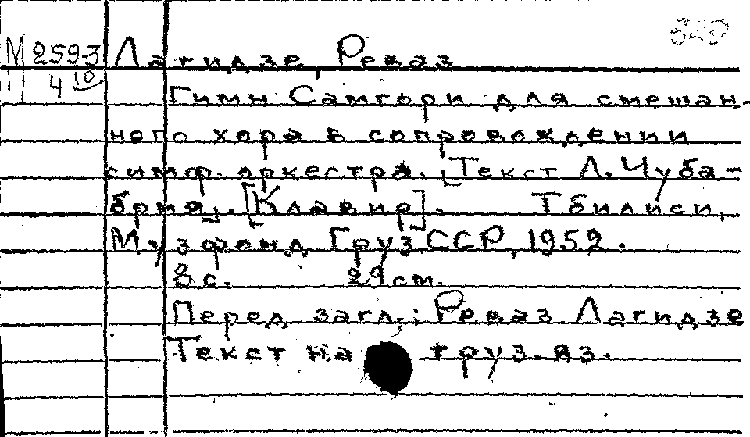 М 259-3 Лагидзе, Реваз
III 4 10 Гимн Самгори для смешан-
ного хора в сопровождении
симф. оркестра. [Текст Л. Чуба-
брия]. [Клавир]. Тбилиси,
Музфонд Груз.ССР, 1952.
8 с. 29 см.
Перед загл.: Реваз Лагидзе
Текст на груз. яз.